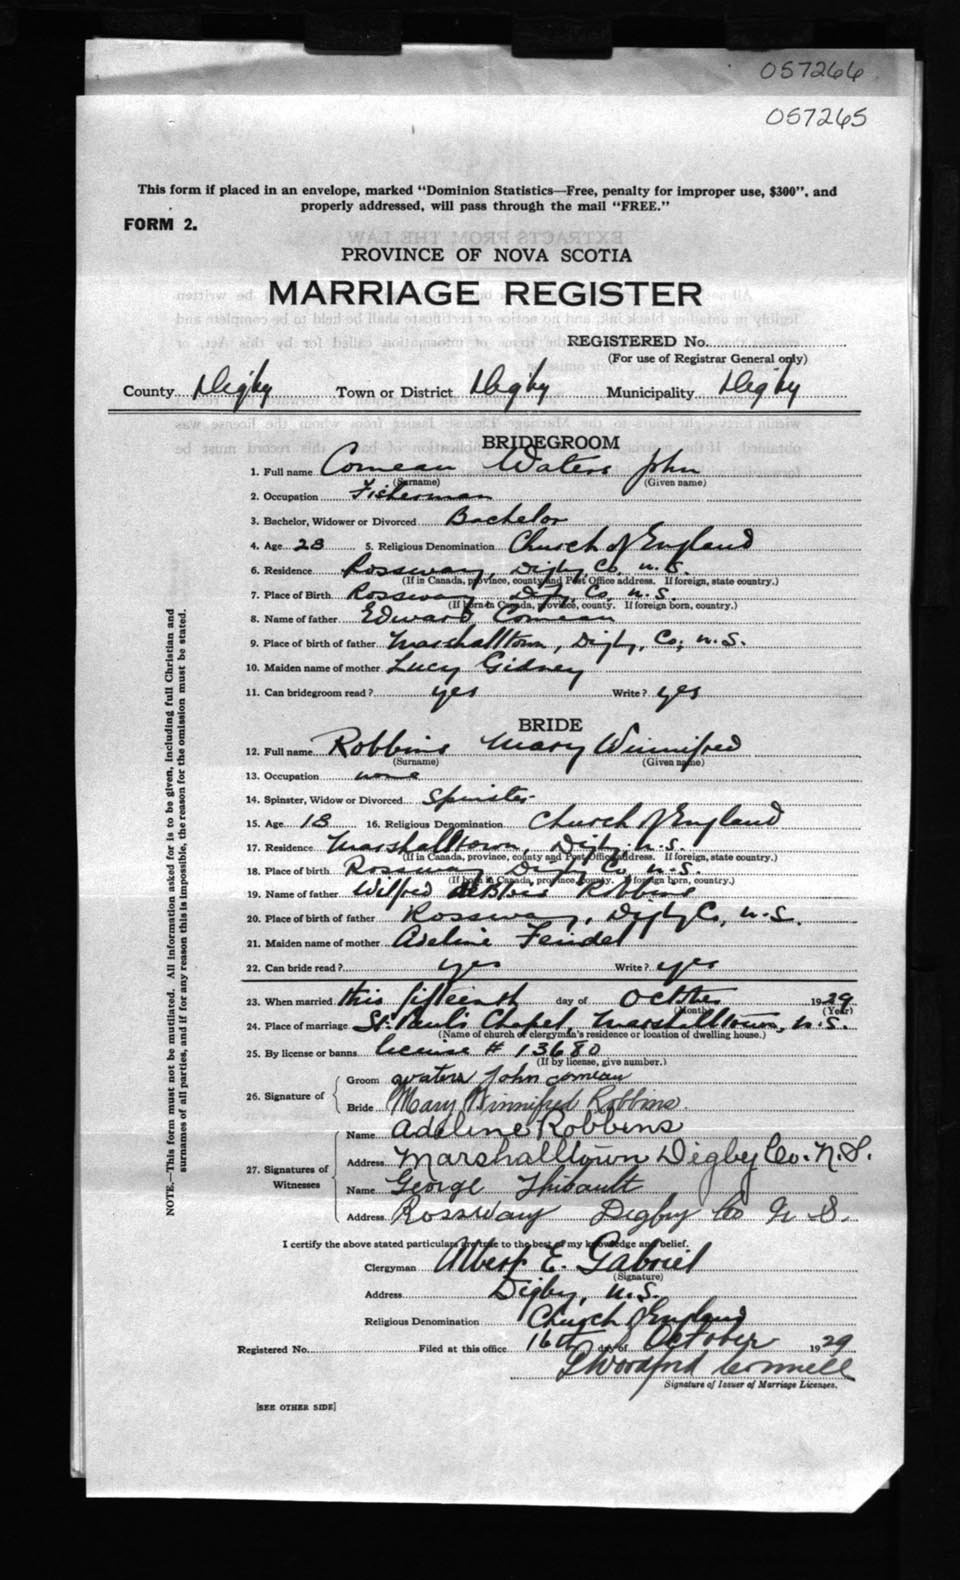 057266
057265
This form if placed in an envelope, marked "Dominion Statistics—Free, penalty for improper use, $300", and
properly addressed, will pass through the mail "FREE."
FORM 2.
PROVINCE OF NOVA SCOTIA
MARRIAGE REGISTER
REGISTERED No.
(For use of Registrar General only)
County Digby Town or District Digby Municipality Digby
BRIDEGROOM
1. Full name Comeau Waters John
(Surname) (Given name)
2. Occupation Fisherman
3. Bachelor, Widower or Divorced Bachelor
4. Age 23 5. Religious Denomination Church of England
6. Residence Rossway, Digby Co. N.S.
(If in Canada, province, county and Post Office address. If foreign, state country.)
7. Place of Birth Rossway Digby Co. N.S.
(If born in Canada, province, county. If foreign born, country.)
8. Name of father Edward Comeau
9. Place of birth of father Marshalltown, Digby, Co; N.S.
10. Maiden name of mother Lucy Gidney
11. Can bridegroom read? yes Write? yes
BRIDE
12. Full name Robbins Mary Winnifred
(Surname) (Given name)
13. Occupation none
14. Spinster, Widow or Divorced Spinster
15. Age 18 16. Religious Denomination Church of England
17. Residence Marshalltown, Digby N.S.
(If in Canada, province, county and Post Office address. If foreign, state country.)
18. Place of birth Rossway Digby Co. N.S.
(If born in Canada, province, county. If foreign born, country.)
19. Name of father Wilfred Robbins
20. Place of birth of father Rossway, Digby Co, N.S.
21. Maiden name of mother Adeline Feindel
22. Can bride read? yes Write? yes
23. When married this fifteenth day of October 1929
(Month) (Year)
24. Place of marriage St. Paul's Chapel, Marshalltown, N.S.
(Name of church or clergyman's residence or location of dwelling house.)
25. By license or banns license # 13680
(If by license, give number.)
26. Signature of
Groom Waters John Comeau
Bride Mary Winnifred Robbins.
27. Signatures of Witnesses
Name Adeline Robbins
Address Marshalltown Digby Co. N.S.
Name George Thibault
Address Rossway Digby Co N S.
I certify the above stated particulars are true to the best of my knowledge and belief.
Clergyman Albert E. Gabriel
(Signature)
Address Digby, N.S.
Religious Denomination Church of England
Registered No. Filed at this office 16th day of October 1929
Woodford Connell
Signature of Issuer of Marriage Licenses.
[SEE OTHER SIDE]
NOTE.—This form must not be mutilated. All information asked for is to be given, including full Christian and
surnames of all parties, and if for any reason this is impossible, the reason for the omission must be stated.